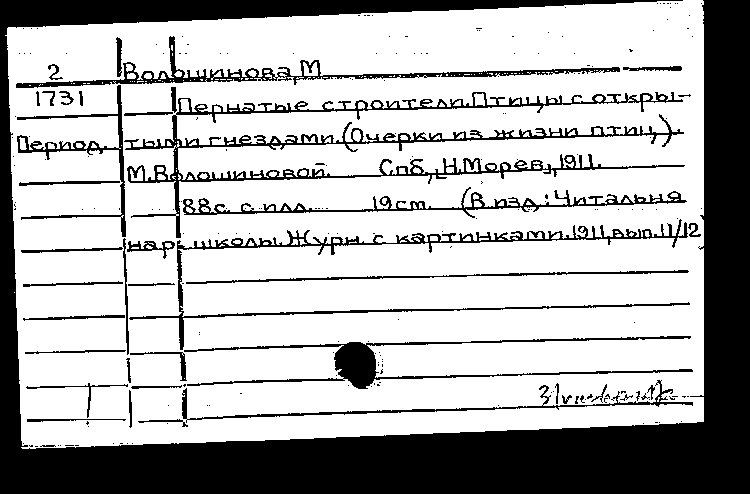 2 Волошинова, М
1731 Пернатые строители. Птицы с откры-
Период. тыми гнездами. (Очерки из жизни птиц).
М. Волошиновой. Спб., Н. Морев, 1911.
88с. с илл. 19см. (В изд.: Читальня
нар. школы. Журн. с картинками. 1911, вып. 11/12)